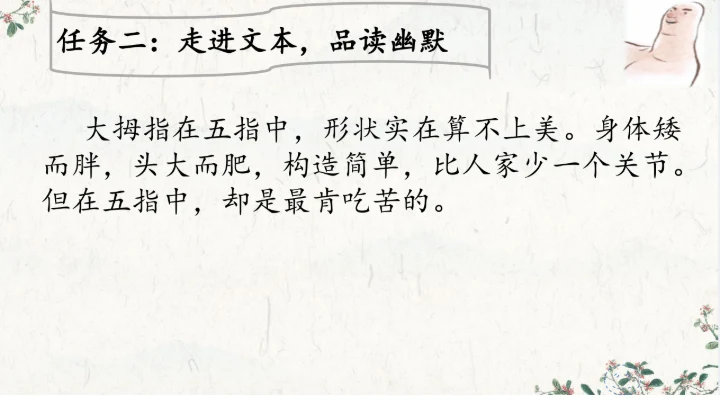 任务二：走进文本，品读幽默
大拇指在五指中，形状实在算不上美。身体矮
而胖，头大而肥，构造简单，比人家少一个关节。
但在五指中，却是最肯吃苦的。